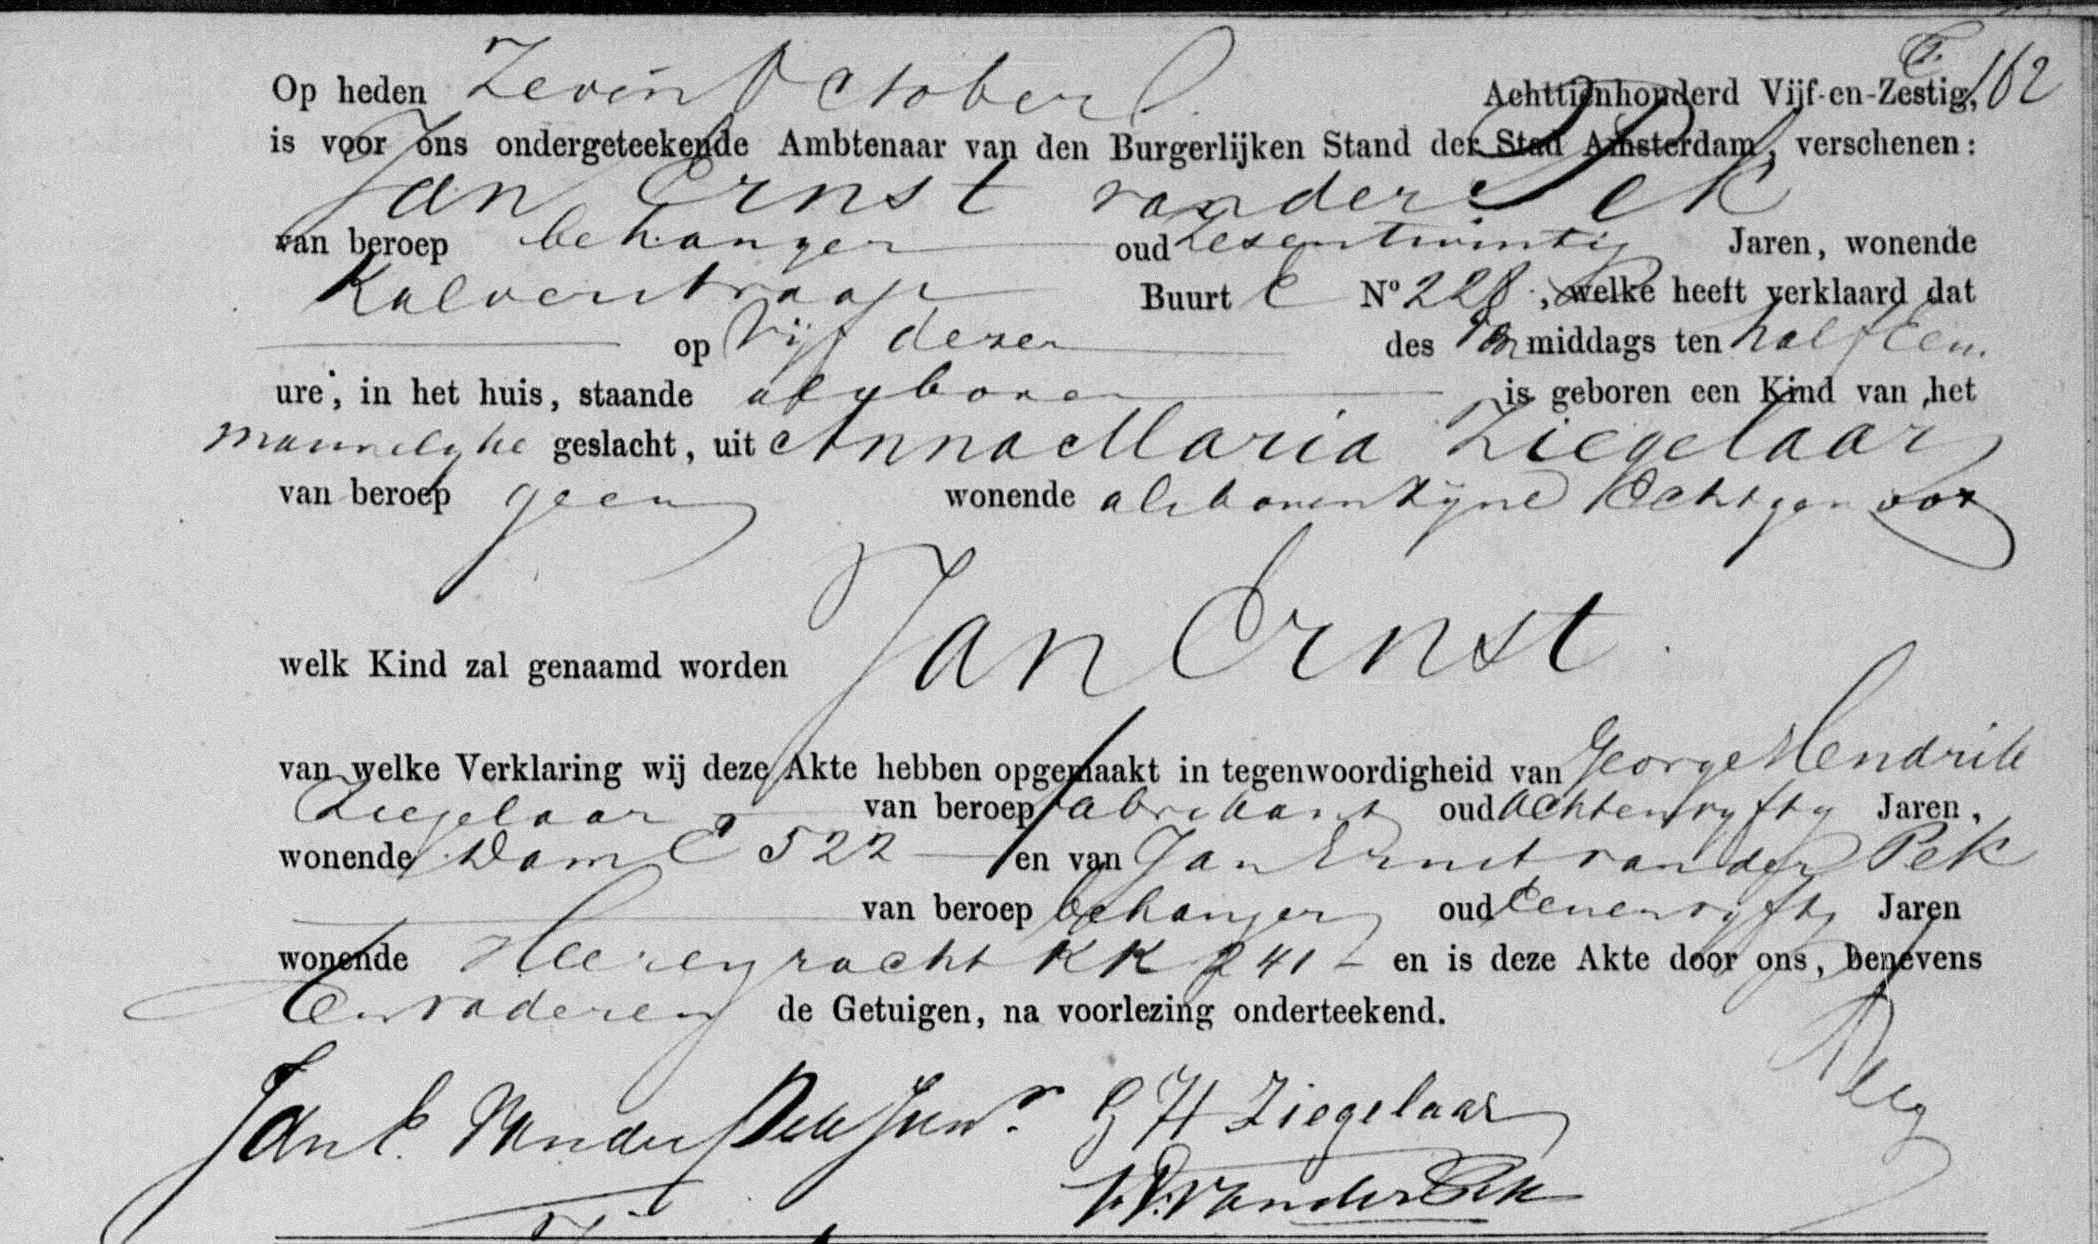 F. 162
Op heden Zeven October Achttienhonderd Vijf-en-Zestig,
is voor ons ondergeteekende Ambtenaar van den Burgerlijken Stand der Stad Amsterdam, verschenen:
Jan Ernst van der Pek
van beroep behanger oud Zesentwintig Jaren, wonende
Kalverstraat Buurt E Nº 228, welke heeft verklaard dat
op Vijf dezer des Vm middags ten half Een
ure, in het huis, staande alsboven is geboren een Kind van het
mannelyke geslacht, uit Anna Maria Ziegelaar
van beroep geen wonende alsboven zijne Echtgenoot
welk Kind zal genaamd worden Jan Ernst
van welke Verklaring wij deze Akte hebben opgemaakt in tegenwoordigheid van George Hendrik
Ziegelaar van beroep fabrikant oud achtenvyfty Jaren,
wonende Dam E 522 en van Jan Ernst van der Pek
van beroep behanger oud Eenenvyfty Jaren
wonende Heerengracht KK 241 en is deze Akte door ons, benevens
En vader en de Getuigen, na voorlezing onderteekend.
Jan E. Van der Pek Junr. G H Ziegelaar
van der Pek